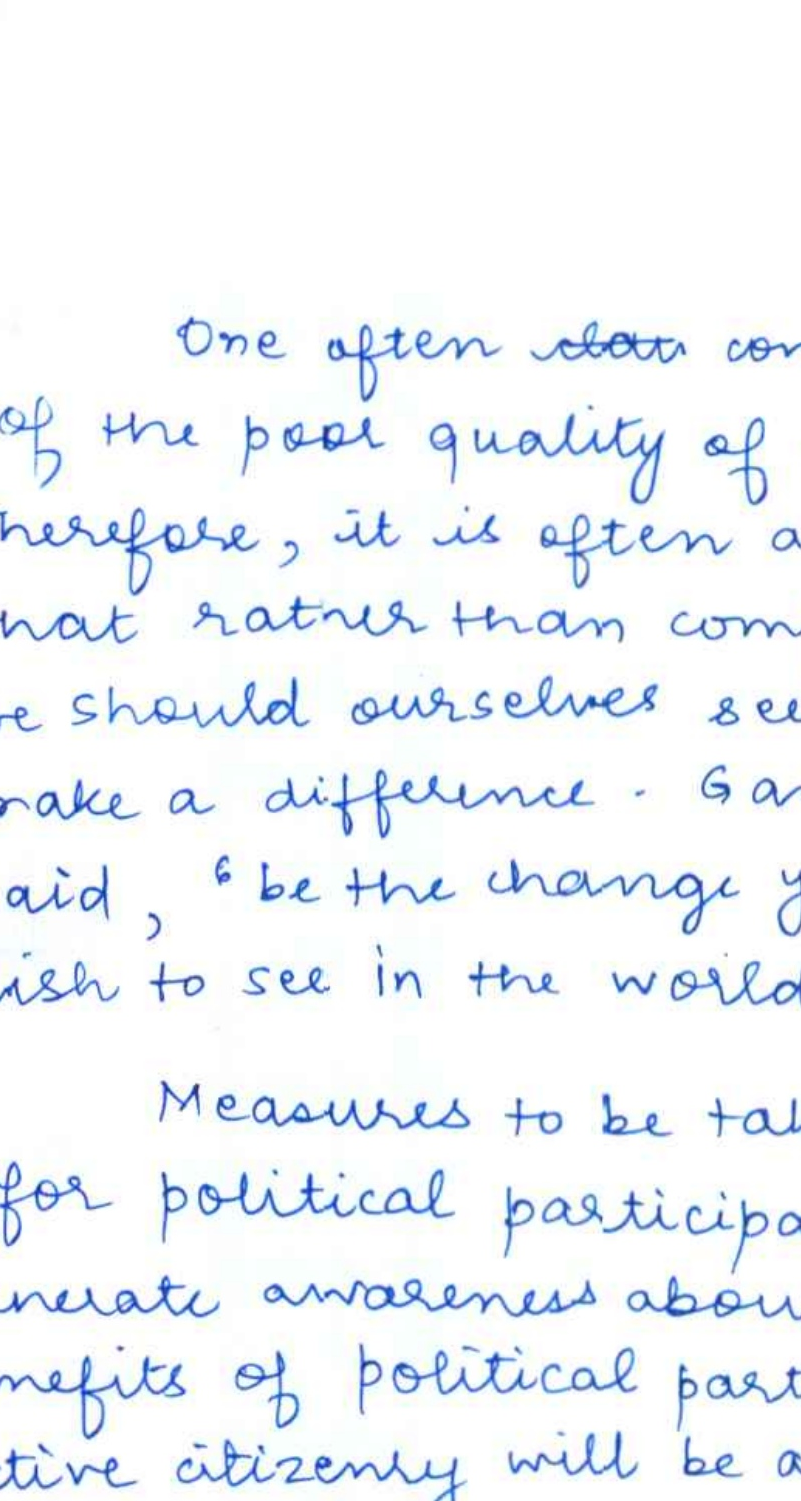 One often con
of the poor quality of
herefore, it is often a
hat rather than com
e should ourselves see
nake a difference. Gan
aid, 'be the change y
ish to see in the world
Measures to be tak
for political participa
nerate awareness abou
nefits of political part
tive citizenry will be a